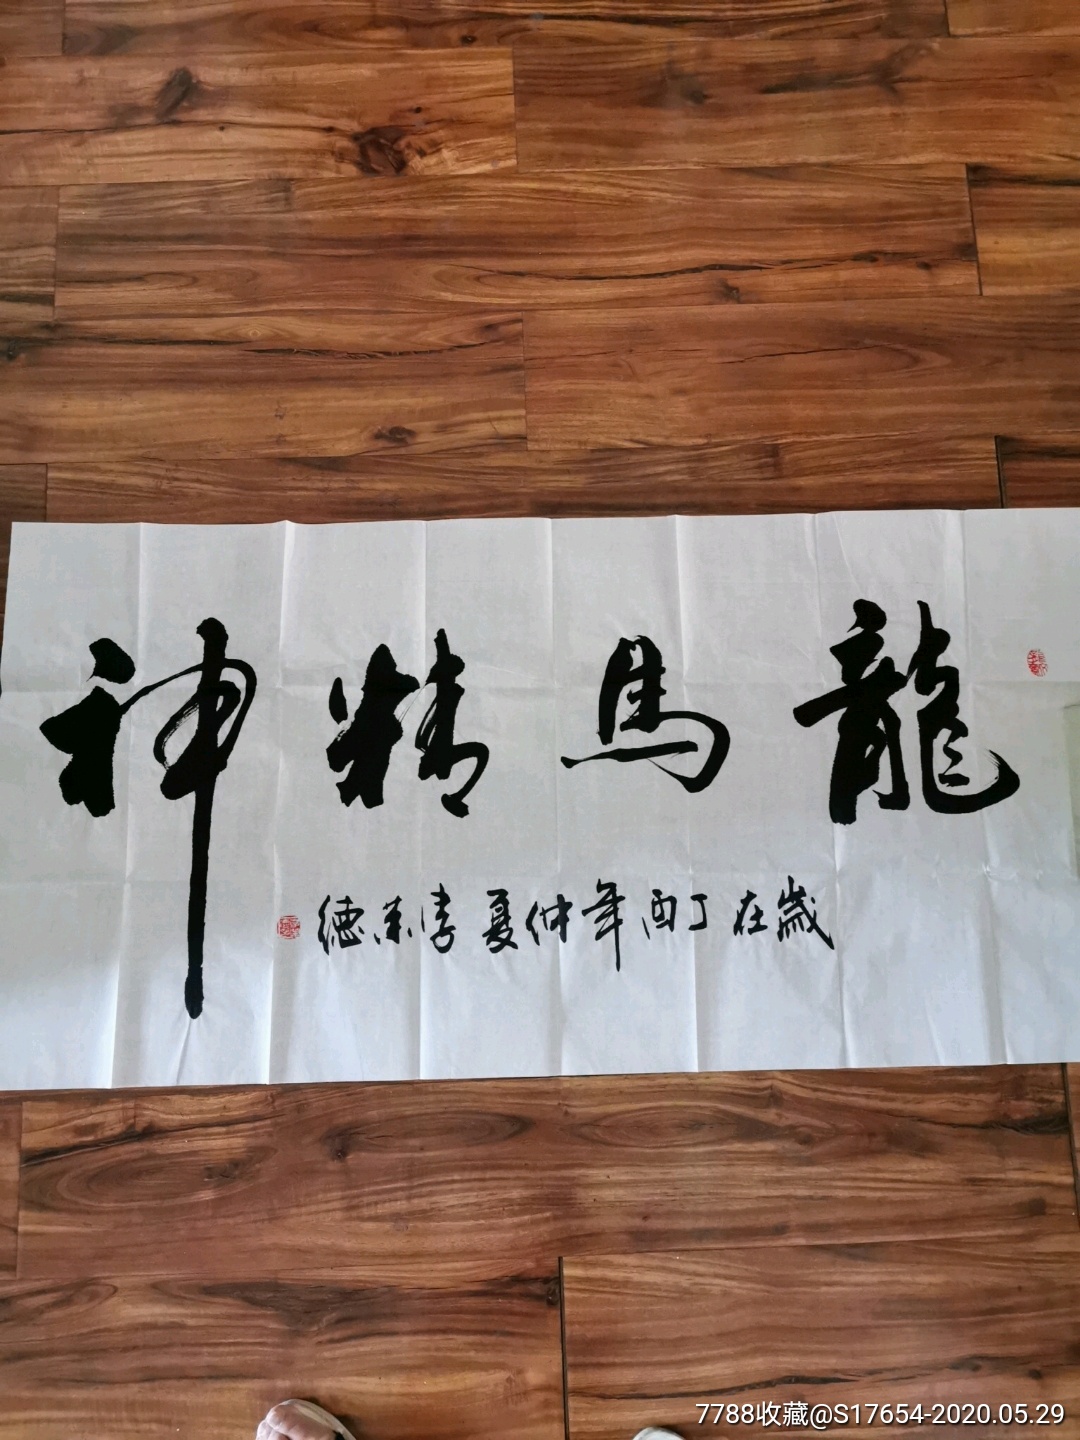 龍馬精神
歲在丁酉年仲夏李荣德
7788收藏@S17654-2020.05.29